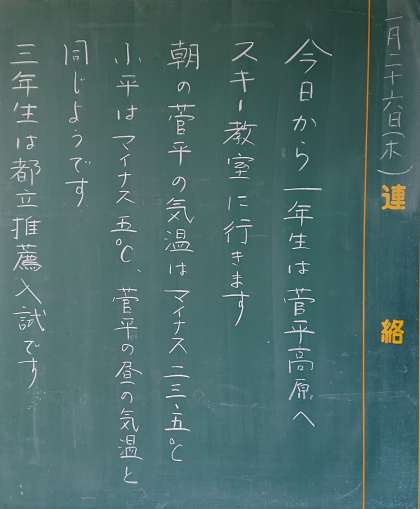 一月二十六日(木)
連絡
今日から一年生は菅平高原へ
スキー教室に行きます
朝の菅平の気温はマイナス二三、五℃
小平はマイナス五℃、菅平の昼の気温と
同じようです
三年生は都立推薦入試です